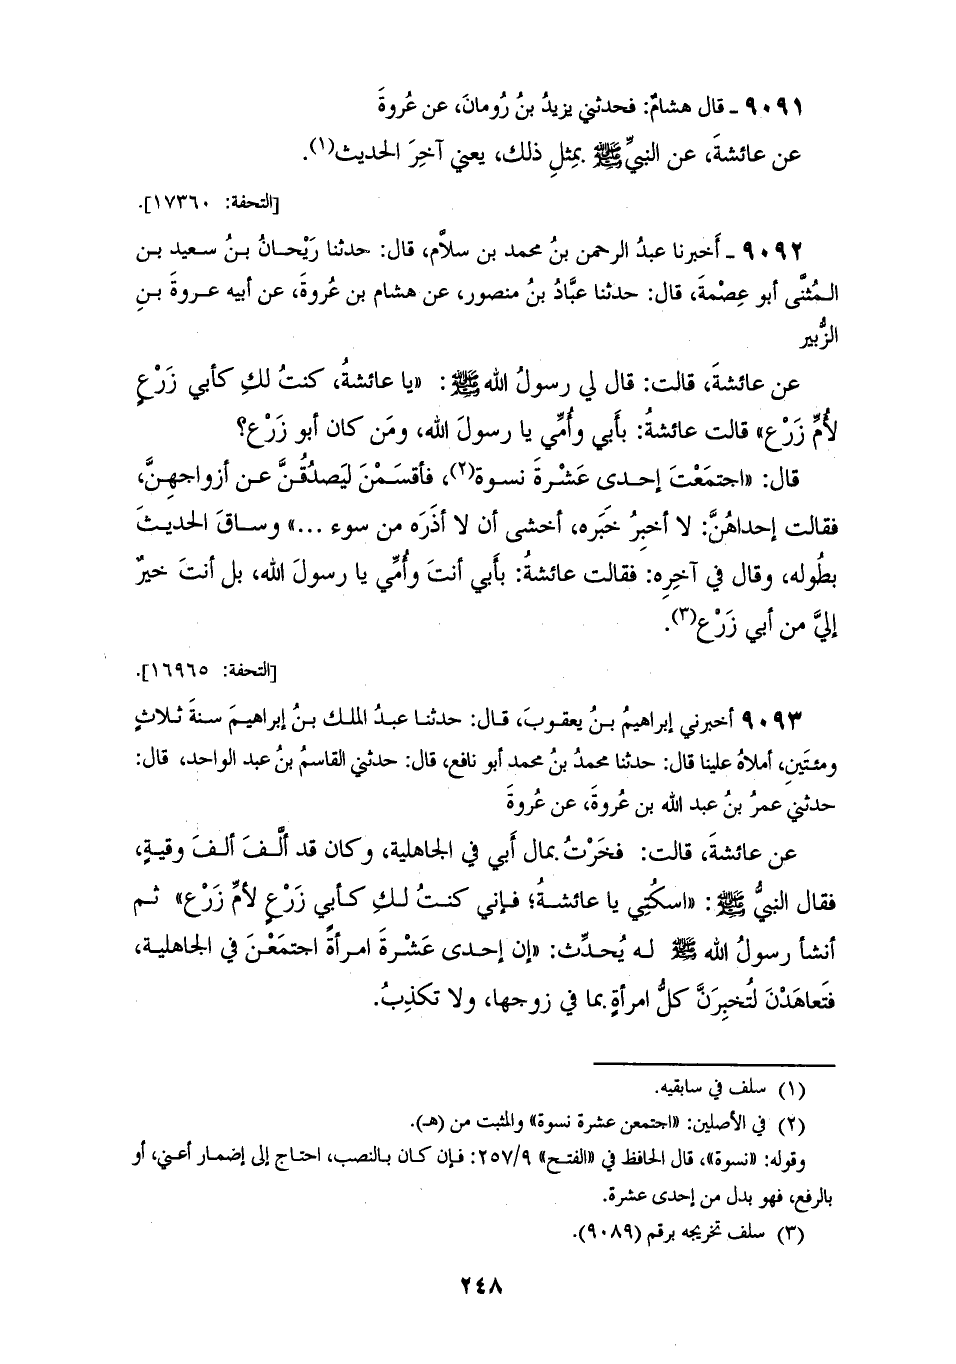 ٩٠٩١ ـ قال هشامٌ: فحدثني يزيدُ بنُ رُومانَ، عن عُروةَ
عن عائشةَ، عن النبيِّ ﷺ بمِثلِ ذلك، يعني آخِرَ الحديث(١).
[التحفة: ١٧٣٦٠].
٩٠٩٢ ـ أَخبرنا عبدُ الرحمن بنُ محمد بن سلاَّم، قال: حدثنا رَيْحانُ بنُ سعيد بن
المُثنَّى أبو عِصْمةَ، قال: حدثنا عبَّادُ بنُ منصور، عن هشام بن عُروةَ، عن أبيه عروةَ بنِ
الزُّبير
عن عائشةَ، قالت: قال لي رسولُ الله ﷺ: «يا عائشةُ، كنتُ لكِ كأبي زَرْعٍ
لأُمِّ زَرْع» قالت عائشةُ: بأَبي وأُمِّي يا رسولَ الله، ومَن كان أبو زَرْع؟
قال: «اجتمَعْتَ إحدى عَشْرةَ نسوة(٢)، فأقسَمْنَ ليَصدُقُنَّ عن أزواجهِنَّ،
فقالت إحداهُنَّ: لا أخبِرُ خبَره، أخشى أن لا أذَرَه من سوء ...» وساقَ الحديثَ
بطُوله، وقال في آخرِه: فقالت عائشةُ: بأَبي أنتَ وأُمِّي يا رسولَ الله، بل أنتَ خيرٌ
إليَّ من أبي زَرْع(٣).
[التحفة: ١٦٩٦٥].
٩٠٩٣ أخبرني إبراهيمُ بنُ يعقوبَ، قال: حدثنا عبدُ الملك بنُ إبراهيمَ سنةَ ثلاثٍ
ومئتَينِ، أملاهُ علينا قال: حدثنا محمدُ بنُ محمد أبو نافع، قال: حدثني القاسمُ بنُ عبد الواحد، قال:
حدثني عمرُ بنُ عبد الله بن عُروةَ، عن عُروةَ
عن عائشةَ، قالت: فخَرْتُ بمال أَبي في الجاهلية، وكان قد ألَّفَ ألفَ وقيةٍ،
فقال النبيُّ ﷺ: «اسكُتِي يا عائشةُ؛ فإني كنتُ لكِ كأبي زَرْعٍ لأمِّ زَرْع» ثم
أنشأ رسولُ الله ﷺ له يُحدِّث: «إن إحدى عَشْرةَ امرأةً اجتمَعْنَ في الجاهلية،
فتَعاهَدْنَ لتُخبِرَنَّ كلُّ امرأةٍ بما في زوجها، ولا تكذِبُ.
(١) سلف في سابقيه.
(٢) في الأصلين: «اجتمعن عشرة نسوة» والمثبت من (هـ).
وقوله: «نسوة»، قال الحافظ في «الفتح» ٢٥٧/٩: فإن كان بالنصب، احتاج إلى إضمار أعني، أو
بالرفع، فهو بدل من إحدى عشرة.
(٣) سلف تخريجه برقم (٩٠٨٩).
٢٤٨